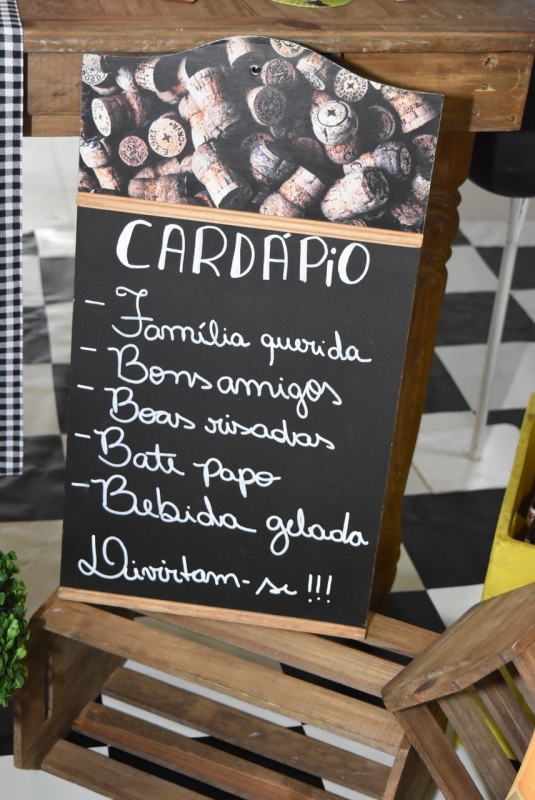 CARDÁPiO
- Família querida
- Bons amigos
- Boas risadas
- Bate papo
- Bebida gelada
Divirtam-se !!!